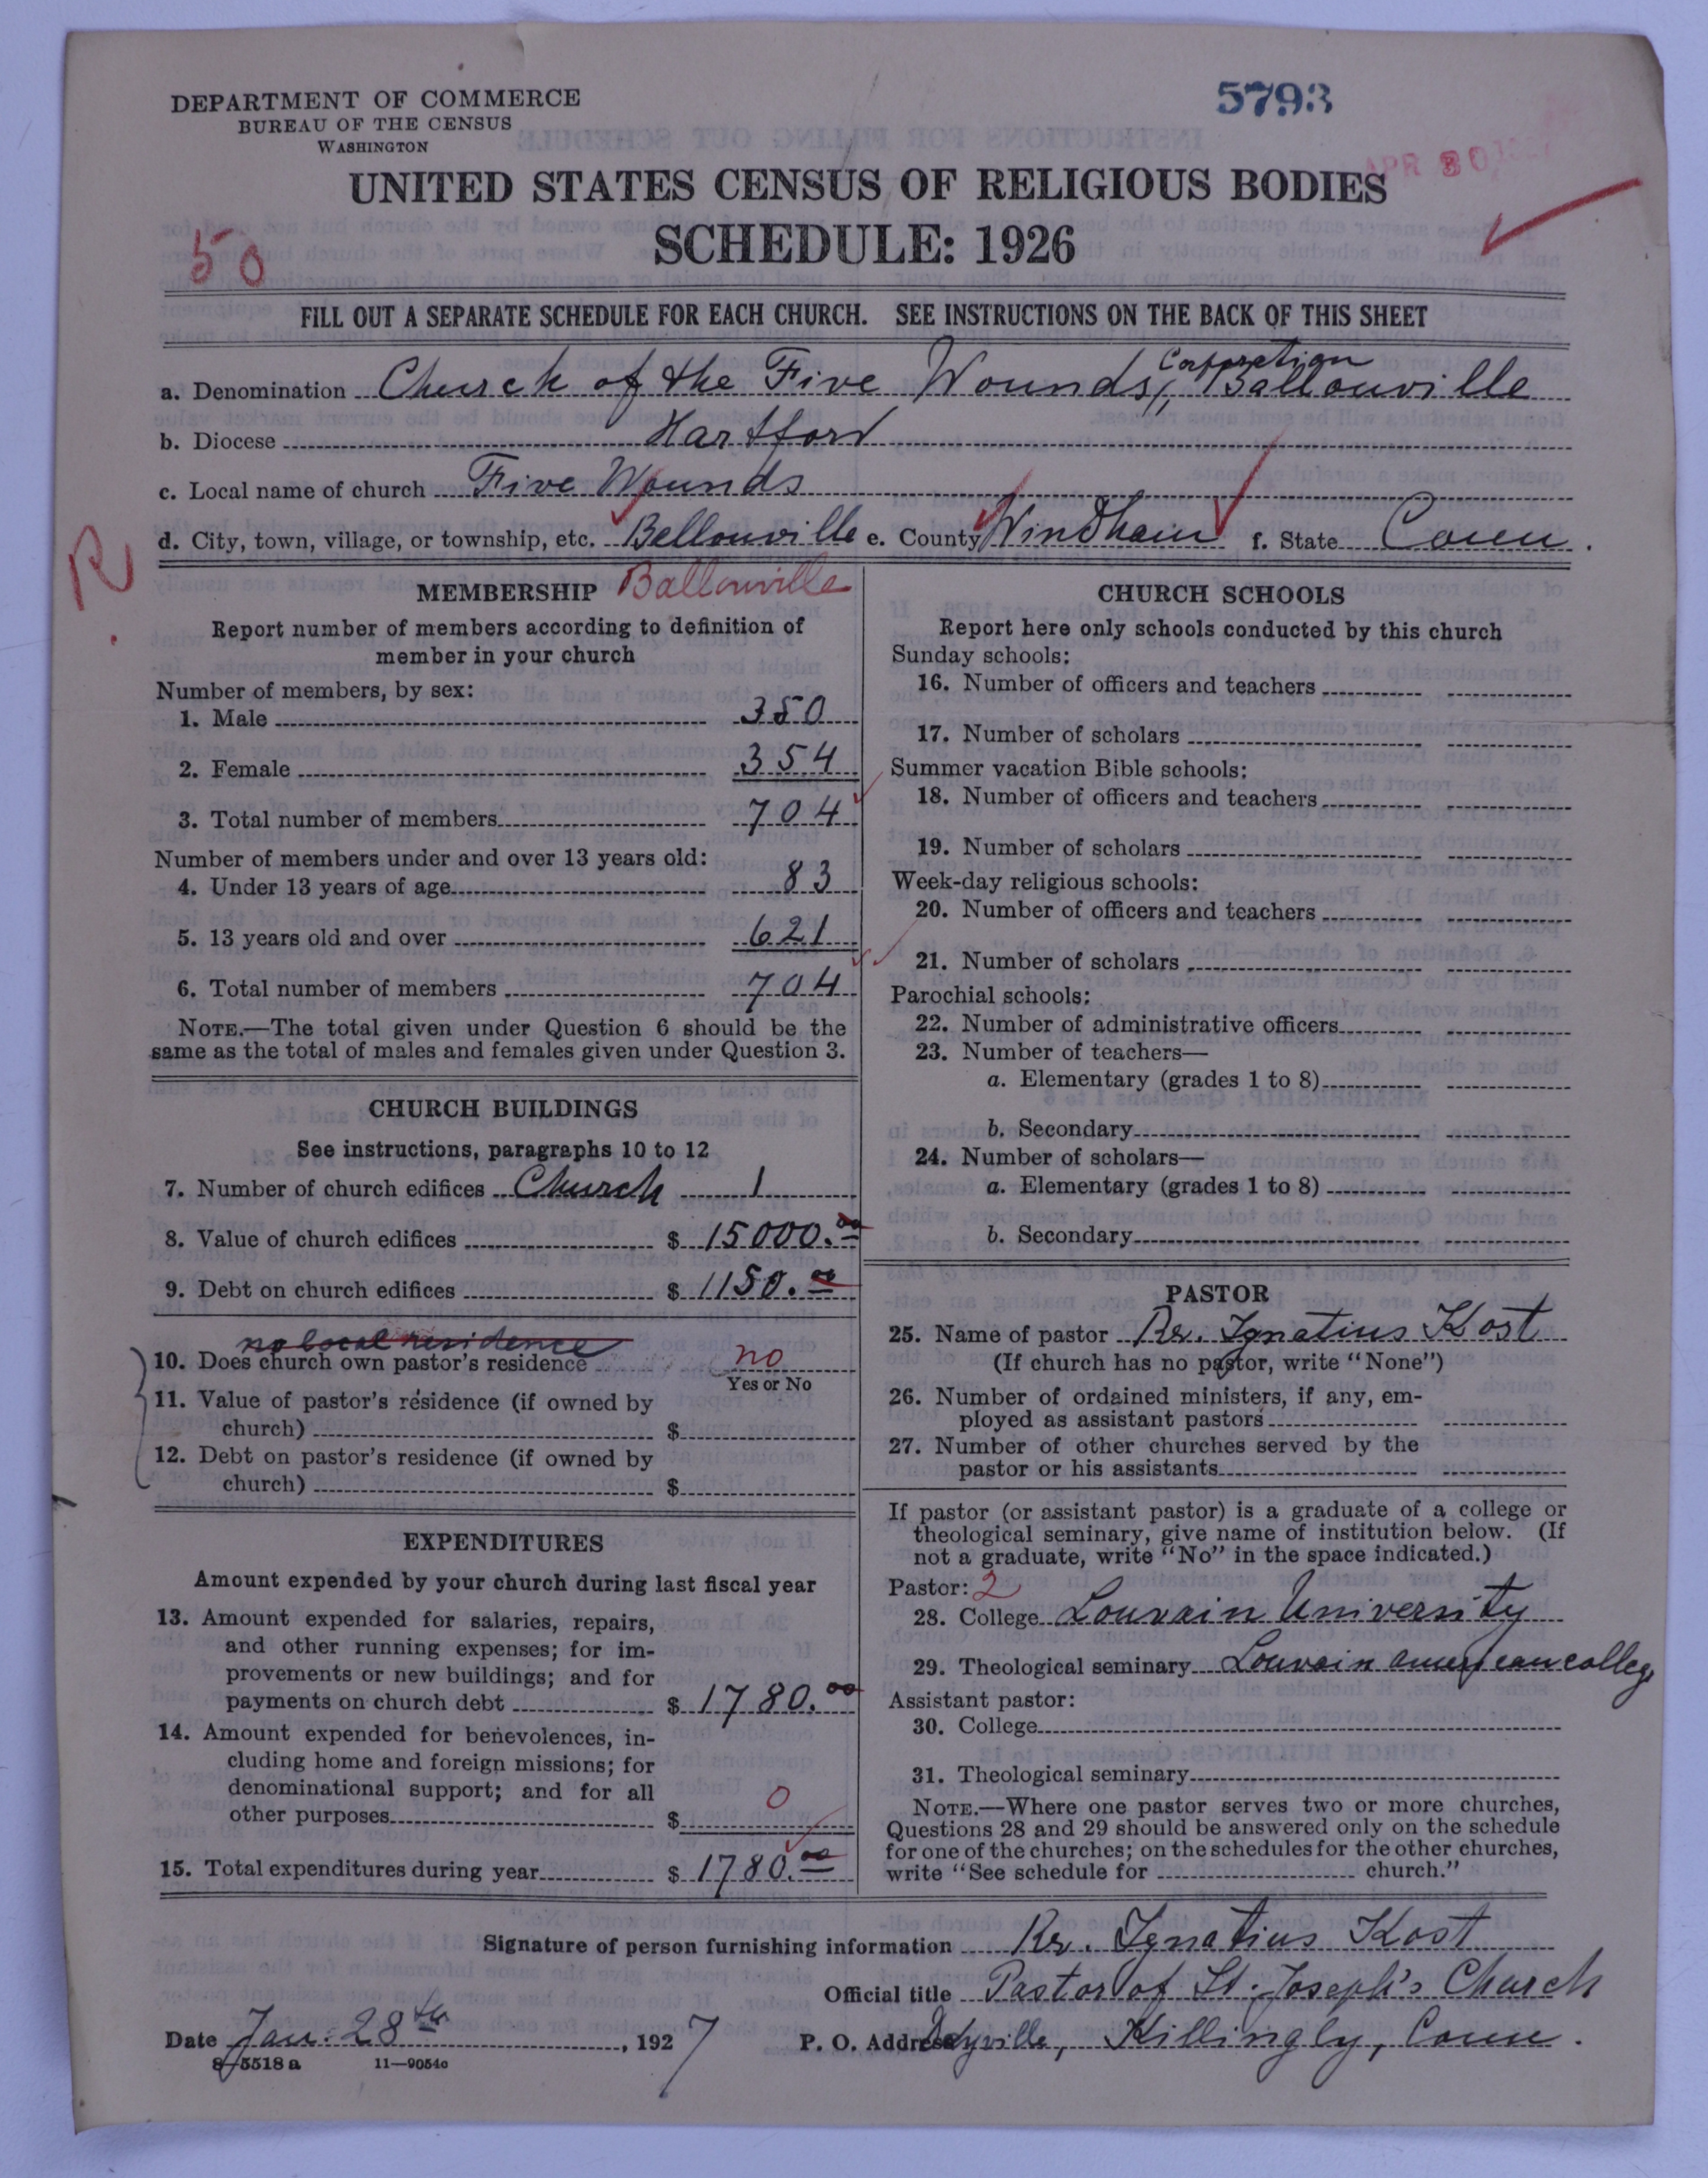 DEPARTMENT OF COMMERCE
BUREAU OF THE CENSUS
WASHINGTON
5793
APR 30
UNITED STATES CENSUS OF RELIGIOUS BODIES
SCHEDULE: 1926
50
FILL OUT A SEPARATE SCHEDULE FOR EACH CHURCH. SEE INSTRUCTIONS ON THE BACK OF THIS SHEET
Corporation
a. Denomination Church of the Five Wounds, Ballouville
b. Diocese Hartford
c. Local name of church Five Wounds
d. City, town, village, or township, etc. Bellouville e. County Windham f. State Conn.
R.
MEMBERSHIP Ballouville
Report number of members according to definition of
member in your church
Number of members, by sex:
1. Male 350
2. Female 354
3. Total number of members 704
Number of members under and over 13 years old:
4. Under 13 years of age 83
5. 13 years old and over 621
6. Total number of members 704
NOTE.—The total given under Question 6 should be the
same as the total of males and females given under Question 3.
CHURCH BUILDINGS
See instructions, paragraphs 10 to 12
7. Number of church edifices Church 1
8. Value of church edifices $ 15000.00
9. Debt on church edifices $ 1150.00
no local residence
10. Does church own pastor's residence no
Yes or No
11. Value of pastor's residence (if owned by
church) $
12. Debt on pastor's residence (if owned by
church) $
EXPENDITURES
Amount expended by your church during last fiscal year
13. Amount expended for salaries, repairs,
and other running expenses; for im-
provements or new buildings; and for
payments on church debt $ 1780.00
14. Amount expended for benevolences, in-
cluding home and foreign missions; for
denominational support; and for all
other purposes $ 0
15. Total expenditures during year $ 1780.00
CHURCH SCHOOLS
Report here only schools conducted by this church
Sunday schools:
16. Number of officers and teachers
17. Number of scholars
Summer vacation Bible schools:
18. Number of officers and teachers
19. Number of scholars
Week-day religious schools:
20. Number of officers and teachers
21. Number of scholars
Parochial schools:
22. Number of administrative officers
23. Number of teachers—
a. Elementary (grades 1 to 8)
b. Secondary
24. Number of scholars—
a. Elementary (grades 1 to 8)
b. Secondary
PASTOR
25. Name of pastor Rv. Ignatius Kost
(If church has no pastor, write "None")
26. Number of ordained ministers, if any, em-
ployed as assistant pastors
27. Number of other churches served by the
pastor or his assistants
If pastor (or assistant pastor) is a graduate of a college or
theological seminary, give name of institution below. (If
not a graduate, write "No" in the space indicated.)
Pastor: 2
28. College Louvain University
29. Theological seminary Louvain american college
Assistant pastor:
30. College
31. Theological seminary
NOTE.—Where one pastor serves two or more churches,
Questions 28 and 29 should be answered only on the schedule
for one of the churches; on the schedules for the other churches,
write "See schedule for church."
Signature of person furnishing information Rv. Ignatius Kost
Official title Pastor of St. Joseph's Church
Date Jan. 28th, 1927 P. O. Address Dayville, Killingly, Conn.
8-5518 a 11—9054c